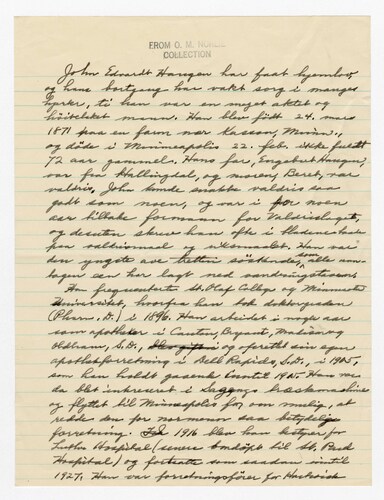 FROM O. M. NORLIE
COLLECTION
John Edvardt Haugen har faat hjemlov
og hans bortgang har vakt sorg i manges
hjerter, ti han var en meget aktet og
høitelsket mann. Han blev født 24. mars
1871 paa en farm nær Kasson, Minn.,
og døde i Minneapolis 22. feb. ikke fuldt
72 aar gammel. Hans far, Engebret Haugen,
var fra Hallingdal, og moren, Beret, var
valdris, John kunde snakke valdris saa
godt som noen, og var i for noen
aar tilbake formann for Valdrislaget,
og desuten skrev han ofte i bladene baade
paa valdrismaal og riksmaalet. Han var
den yngste av tretten søskende, som alle
en har lagt ned vandringsstaven.
Han frequenterte St. Olaf College og Minnesota
Universitet, hvorfra han tok doktorgraden
(Phar. D.) i 1896. Han arbeidet i nogle aar
som apotheker i Canton, Bryant, Madison og
Oldham, S.D., og oprettet sin egen
apothekforretning i Dell Rapids, S.D., i 1905,
som han holdt gaaende inntil 19. Han var
da blit interesert i
og flyttet til Minneapolis for, om mulig, at
redde den for normenn saa betydelig
forretning. I 1916 blev han bestyrer for
Luther Hospital (senere omdøpt til St. Paul
Hospital) og fortsatte som saadan inntil
1927. Han var forretningsfører for